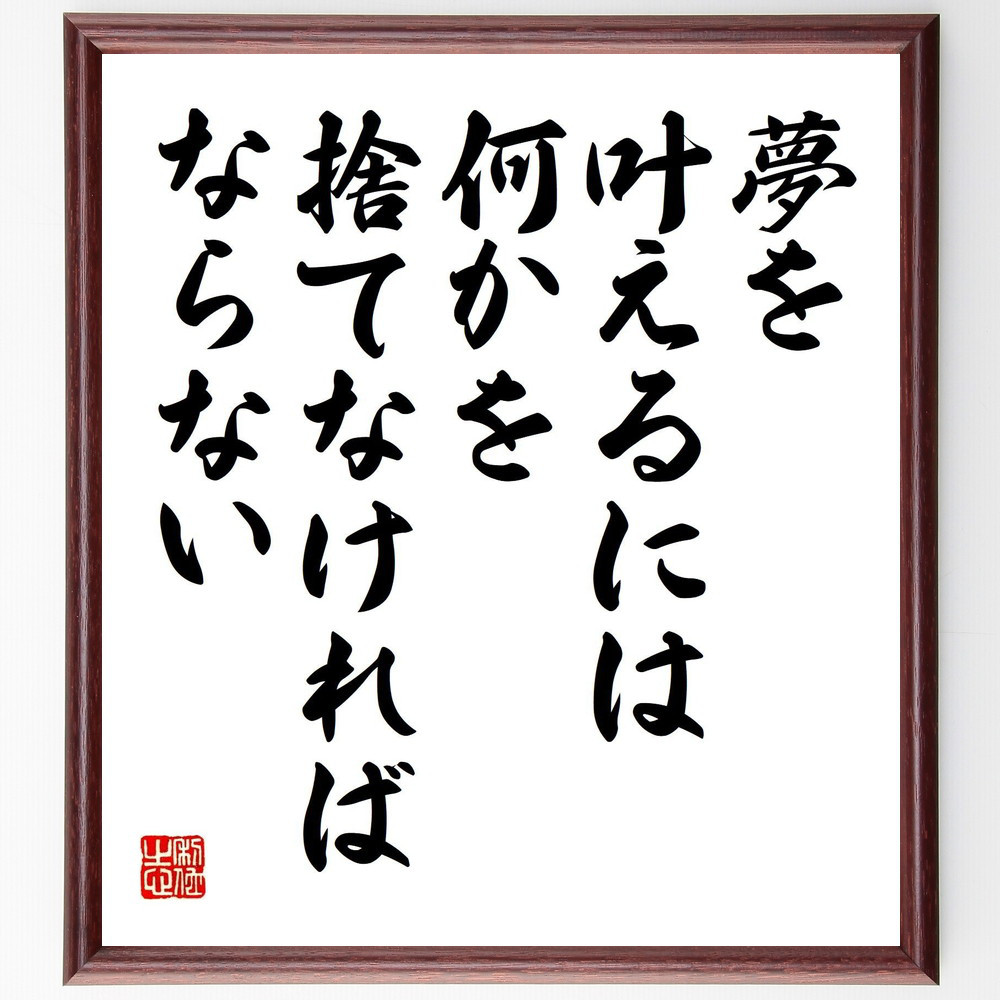 夢を
叶えるには
何かを
捨てなければ
ならない